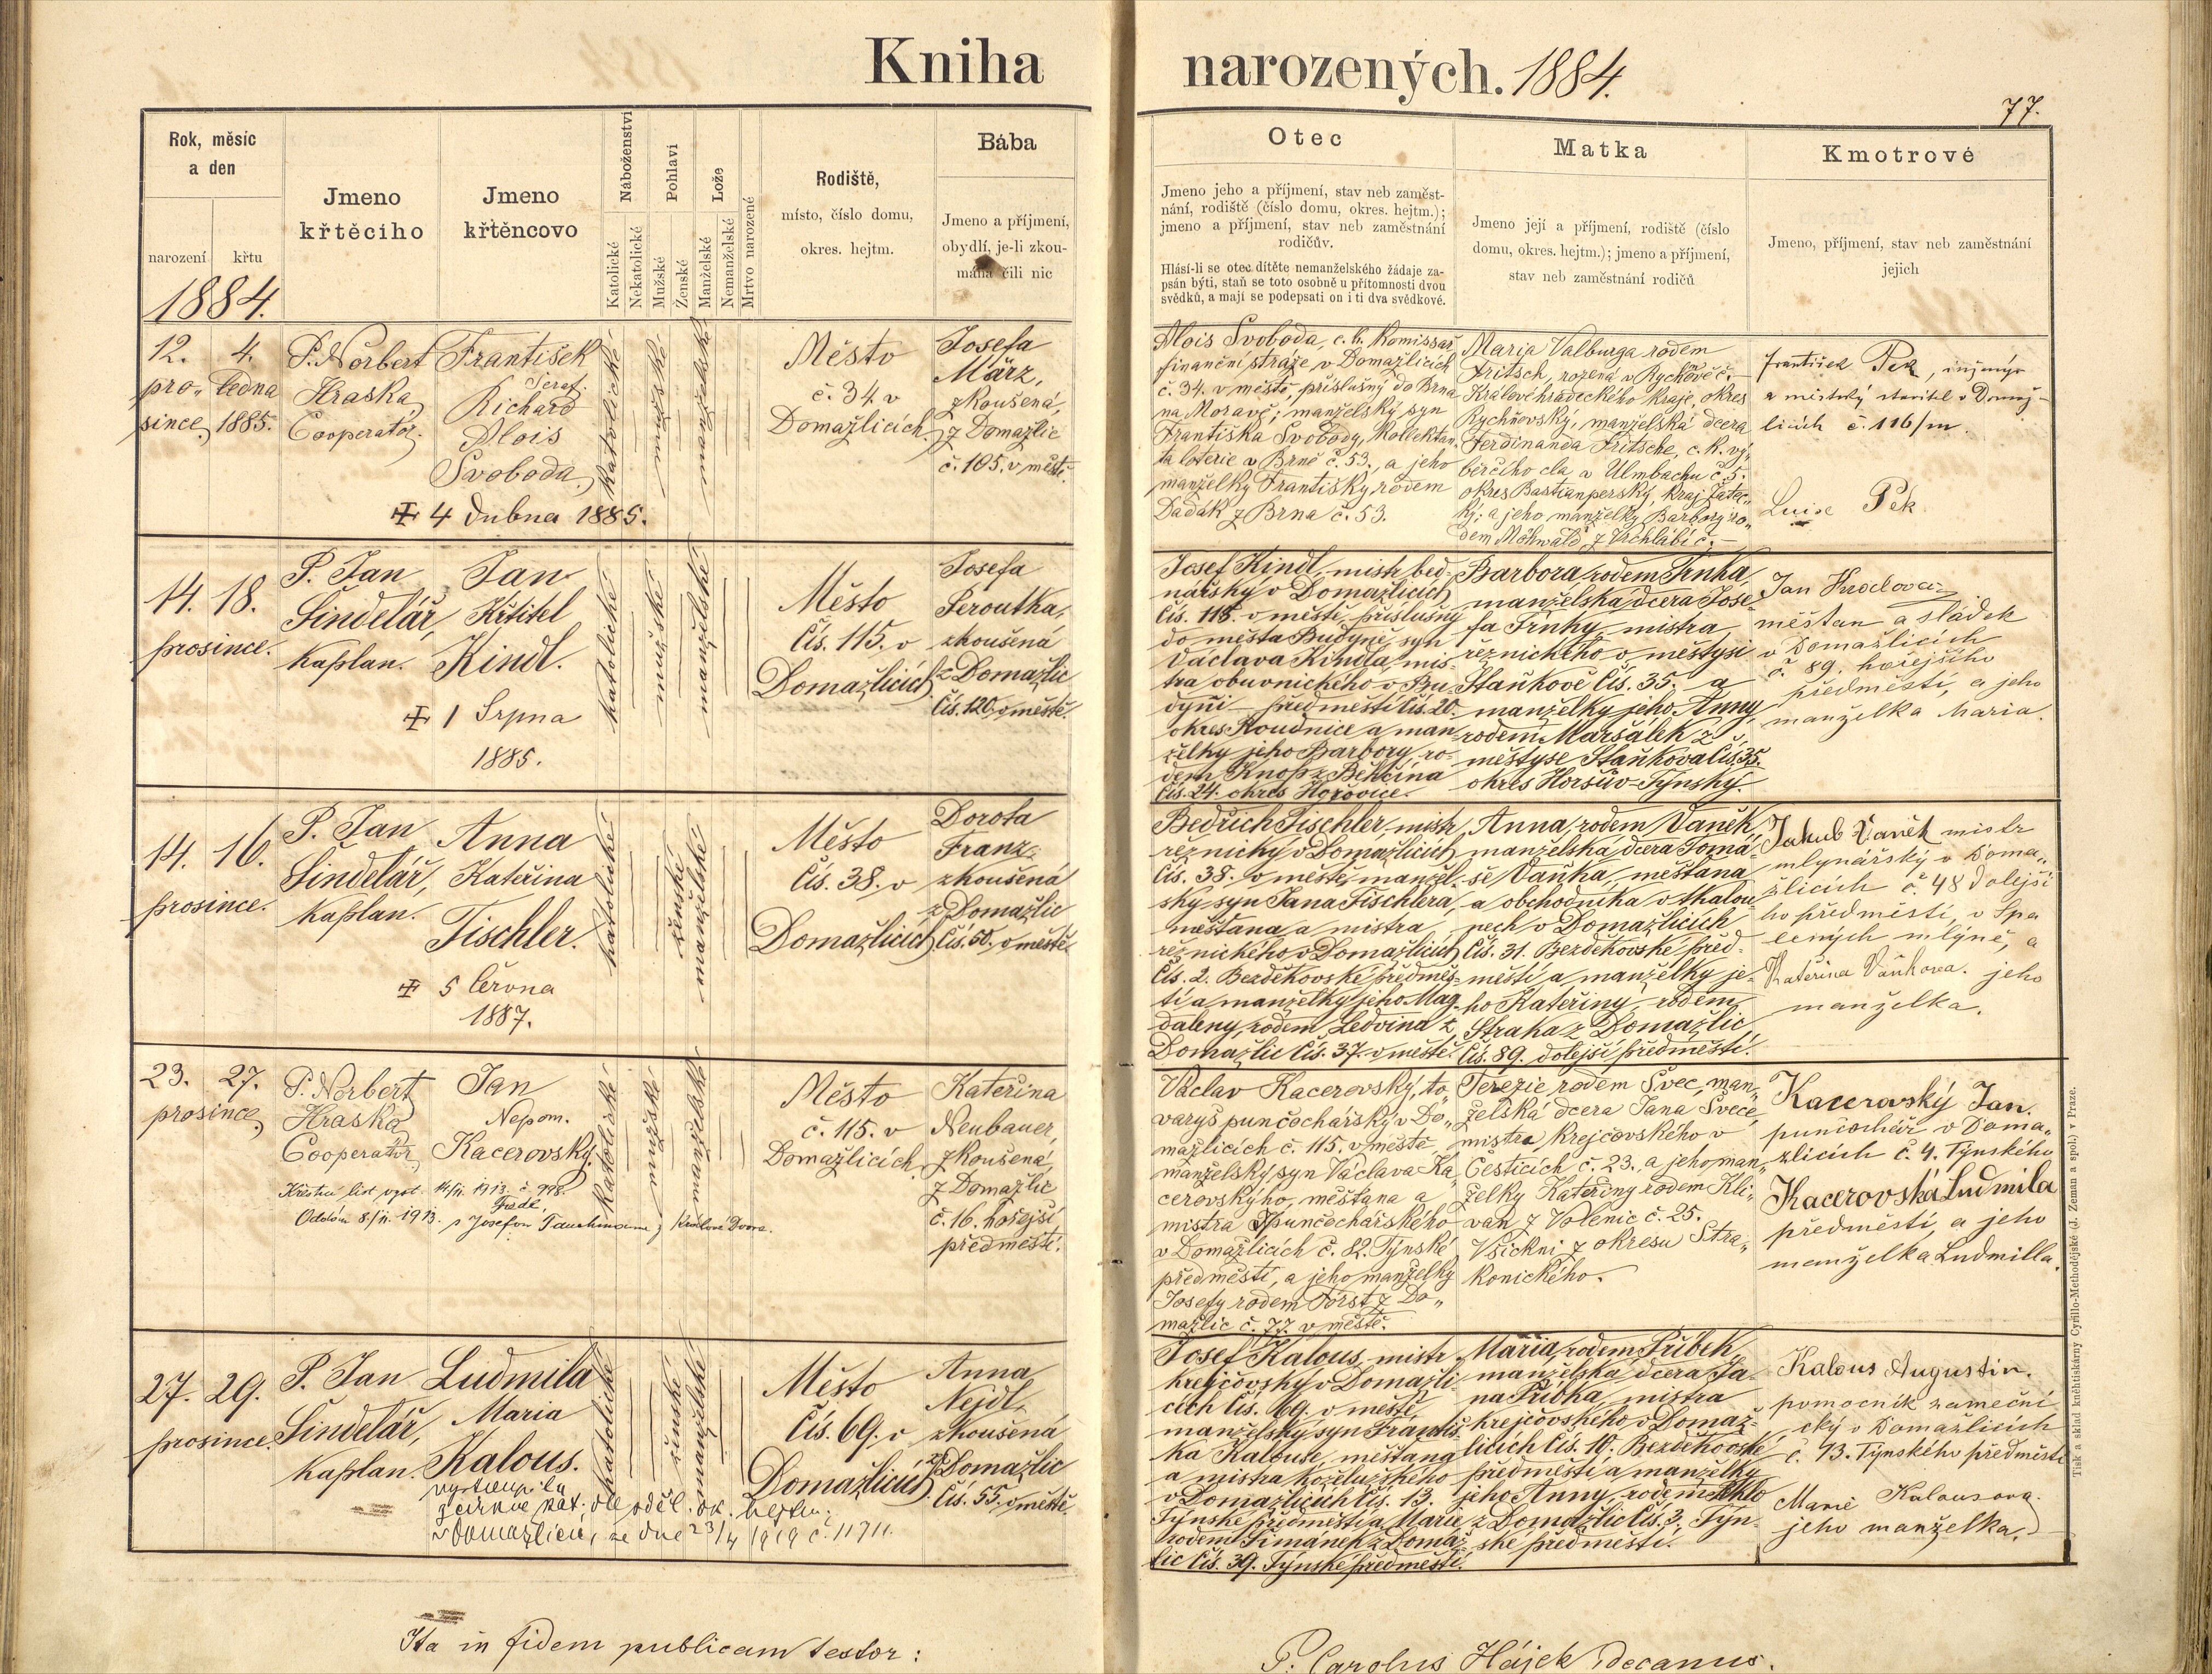 Kniha narozených. 1884.
77.
Rok, měsíc
a den
narození křtu
1884.
Jmeno
křtěcího
Jmeno
křtěncovo
Náboženství
Katolické
Nekatolické
Pohlaví
Mužské
Ženské
Lože
Manželské
Nemanželské
Mrtvo narozené
Rodiště,
místo, číslo domu,
okres. hejtm.
Bába
Jmeno a příjmení,
obydlí, je-li zkou-
mána čili nic
Otec
Jmeno jeho a příjmení, stav neb zaměst-
nání, rodiště (číslo domu, okres. hejtm.);
jmeno a příjmení, stav neb zaměstnání
rodičův.
Hlásí-li se otec dítěte nemanželského žádaje za-
psán býti, staň se toto osobně u přítomnosti dvou
svědků, a mají se podepsati on i ti dva svědkové.
Matka
Jmeno její a příjmení, rodiště (číslo
domu, okres. hejtm.); jmeno a příjmení,
stav neb zaměstnání rodičů
Kmotrové
Jmeno, příjmení, stav neb zaměstnání
jejich
12. 4.
pro- ledna
since 1885.
P. Norbert
Hraska
Cooperator.
František
Seraf.
Richard
Alois
Svoboda
✠ 4 dubna 1885.
katolické
mužské
manželské
Město
č. 34 v
Domažlicích.
Josefa
März,
zkoušená,
z Domažlic
č. 105. v městě.
Alois Svoboda, c. k. komissař
finanční stráže v Domažlicích
č. 34. v městě, příslušný do Brna
na Moravě; manželský syn
Františka Svobody, kollektan-
ta loterie v Brně č. 53., a jeho
manželky Františky rodem
Dadák z Brna č. 53.
Maria Valburga rodem
Fritsch, rozená v Rychnově č. –
Králové hradeckého kraje, okres
Rychňovský, manželská dcera
Ferdinanda Fritsche, c. k. vý-
běrčího cla v Ulmbachu č. 5.
okres Bastianperský, kraj Žatec-
ký; a jeho manželky Barbory ro-
dem Möhwald, z Vrchlabí č. –
František Pek, inženýr
a městský stavitel v Domaž-
licích č. 116/m.
Luise Pek
14. 18.
prosince.
P. Jan
Šindelář,
kaplan.
Jan
Křtitel
Kindl.
✠ 1 Srpna
1885.
katolické
mužské
manželské
Město
Čís. 115. v
Domažlicích
Josefa
Peroutka,
zkoušená
z Domažlic
Čís. 120. v městě.
Josef Kindl, mistr bed-
nářský v Domažlicích
čís. 115. v městě, příslušný
do města Budyně, syn
Václava Kindla, mis-
tra obuvnického v Bu-
dyni – předměstí čís. 20.
okres Roudnice a man-
želky jeho Barbory, ro-
dem Knop z Běřčína
čís. 24. okres Hořovice.
Barbora, rodem Trnka,
manželská dcera Jose-
fa Trnky, mistra
řeznického v městysi
Staňkově čís. 35. a
manželky jeho Anny,
rodem Maršálek z
městyse Staňkova čís. 35.
okres Horšův-Týnský.
městan a sládek
v Domažlicích
č. 89. hořejšího
předměstí, a jeho
manželka Maria.
14. 16.
prosince.
P. Jan
Šindelář,
kaplan.
Anna
Kateřina
Tischler.
✠ 5 června
1887.
katolické
ženské
manželské
Město
Čís. 38. v
Domažlicích
Dorota
Franz,
zkoušená
z Domažlic
Čís. 50. v městě
Bedřich Tischler, mistr
řeznický v Domažlicích
čís. 38. v městě, manžel-
ský syn Jana Tischlera,
měšťana a mistra
řeznického v Domažlicích
čís. 2. Bezděkovské předměs-
tí a manželky jeho Mag-
daleny, rodem Ledvina z
Domažlic čís. 37. v městě.
Anna, rodem Vaněk,
manželská dcera Tomá-
še Vaňka, měšťana
a obchodníka v tkalou-
nech v Domažlicích
čís. 31. Bezděkovské před-
městí a manželky je-
ho Kateřiny, rodem
Straka z Domažlic,
čís. 89. dolejší předměstí.
Jakub Vaněk mistr
mlynářský v Doma-
žlicích č. 48 dolejší-
ho předměstí, v Spa
lených mlýně, a
Kateřina Vaňkova. jeho
manželka.
23. 27.
prosince
P. Norbert
Hraska
Cooperator
Jan
Nepom.
Kacerovský.
Křestní list vyst. 14/II. 1913. č. 998.
Oddán 8/II. 1913.
katolické
mužské
manželské
Město
č. 115. v
Domažlicích
Kateřina
Neubauer,
zkoušená,
z Domažlic
č. 16. hořejší
předměstí.
Václav Kacerovský, to-
varyš punčochářský v Do-
mažlicích č. 115. v městě,
manželský syn Václava Ka-
cerovskýho, měšťana a
mistra punčochářského
v Domažlicích č. 82. Týnské
předměstí, a jeho manželky
Josefy rodem Forst z Do-
mažlic č. 77. v městě.
Terezie rodem Švec, man-
želská dcera Jana Švece,
mistra krejčovského v
Česticích č. 23. a jeho man-
želky Kateřiny rodem Kli-
van z Volenic č. 25.
Všickni z okresu Stra-
konického.
Kacerovský Jan.
punčochář v Doma-
žlicích č. 4. Týnského
Kacerovská Ludmila
předměstí, a jeho
manželka Ludmilla.
27. 29.
prosince.
P. Jan
Šindelář,
kaplan.
Ludmila
Maria
Kalous.
vystoupila
z církve kat. dle sděl. ok. hejtm.
v Domažlicích, ze dne 23/4 1919 č. 11711.
katolické
ženské
manželské
Město
Čís. 69. v
Domažlicích.
Anna
Nejdl,
zkoušená
z Domažlic
Čís. 55. v městě.
Josef Kalous, mistr
krejčovský v Domažli-
cích čís. 69. v městě,
manželský syn Františ-
ka Kalouse, měšťana
a mistra koželužského
v Domažlicích čís. 13.
Týnské předměstí a Marie
rodem Šimánek z Domaž-
lic čís. 39. Týnské předměstí.
Maria, rodem Příbek,
manželská dcera Ja-
na Příbka, mistra
krejčovského v Domaž-
licích čís. 10. Bezděkovské
předměstí a manželky
jeho Anny, rodem
z Domažlic čís. 3. Týn-
ské předměstí.
Kalous Augustin.
pomocník zámeční
cký v Domažlicích
č. 73. Týnského předměstí
Marie Kalousova.
jeho manželka.
Tisk a sklad knihtiskárny Cyrillo-Methodějské (J. Zeman a spol.) v Praze.
Ita in fidem publicam testor:
P. Carolus Hájek decanus.